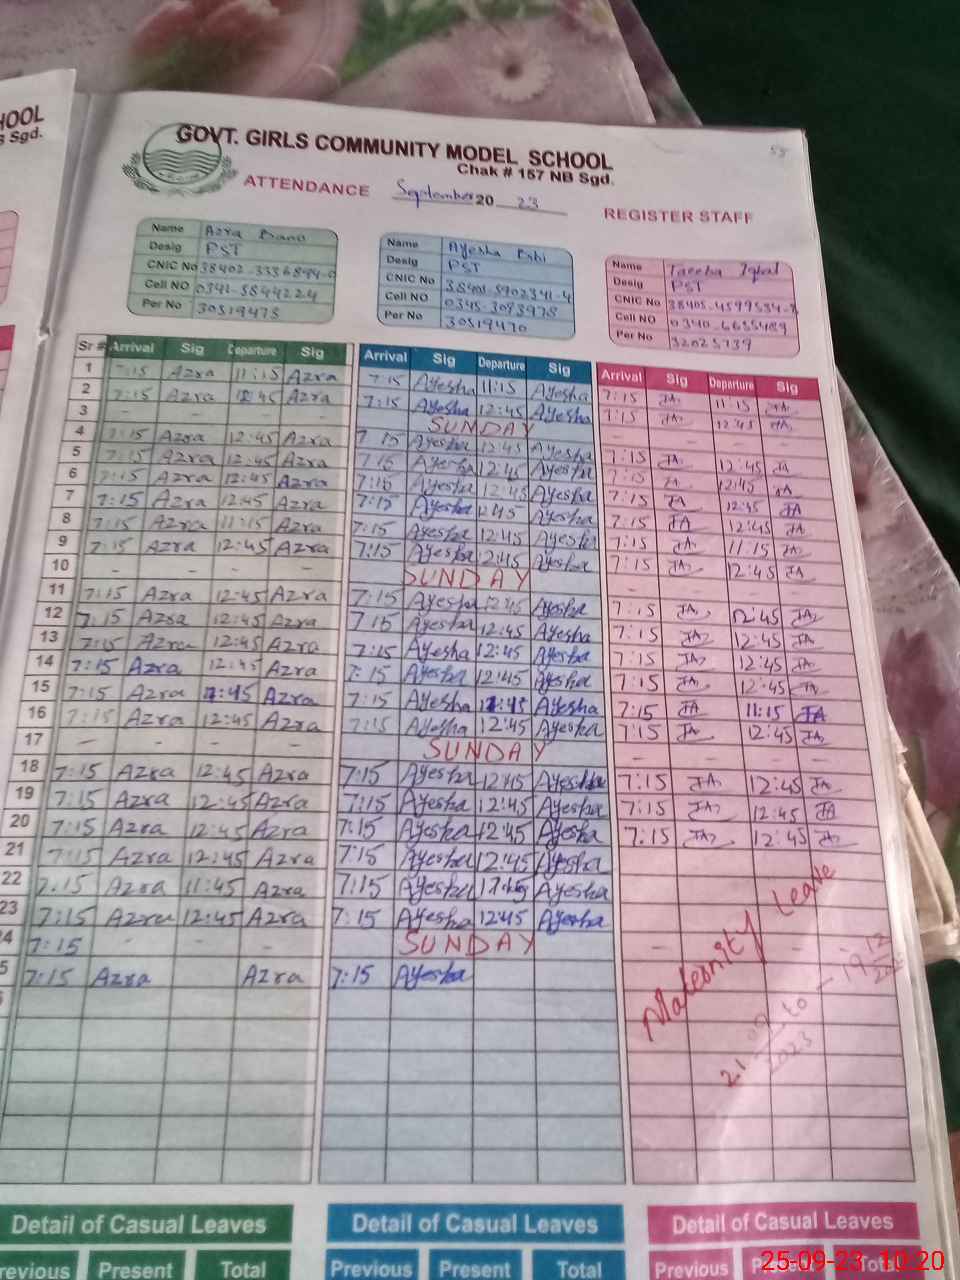 HOOL
Sgd.
58
GOVT. GIRLS COMMUNITY MODEL SCHOOL
Chak # 157 NB Sgd.
ATTENDANCE September 20 23 REGISTER STAFF
Name Azra Bano
Desig PST
CNIC No
Cell NO
Per No 30519475
Name Ayesha
Desig PST
CNIC No
Cell NO 0345-3093978
Per No 30519470
Name Iqbal
Desig PST
CNIC No
Cell NO
Per No 32025739
Sr # Arrival Sig Departure Sig Arrival Sig Departure Sig Arrival Sig Departure Sig
1 7:15 Azra 11:15 Azra 7:15 Ayesha 11:15 Ayesha 7:15 JA 11:15 JA
2 7:15 Azra 12:45 Azra 7:15 Ayesha 12:45 Ayesha 7:15 JA 12:45 JA
3 - - - - SUNDAY - - - -
4 7:15 Azra 12:45 Azra 7:15 Ayesha 12:45 Ayesha 7:15 JA 12:45 JA
5 7:15 Azra 12:45 Azra 7:15 Ayesha 12:45 Ayesha 7:15 JA 12:45 JA
6 7:15 Azra 12:45 Azra 7:15 Ayesha 12:45 Ayesha 7:15 JA 12:45 JA
7 7:15 Azra 12:45 Azra 7:15 Ayesha 12:45 Ayesha 7:15 JA 12:45 JA
8 7:15 Azra 11:15 Azra 7:15 Ayesha 12:45 Ayesha 7:15 JA 11:15 JA
9 7:15 Azra 12:45 Azra 7:15 Ayesha 12:45 Ayesha 7:15 JA 12:45 JA
10 - - - - SUNDAY - - - -
11 7:15 Azra 12:45 Azra 7:15 Ayesha 12:45 Ayesha 7:15 JA 12:45 JA
12 7:15 Azra 12:45 Azra 7:15 Ayesha 12:45 Ayesha 7:15 JA 12:45 JA
13 7:15 Azra 12:45 Azra 7:15 Ayesha 12:45 Ayesha 7:15 JA 12:45 JA
14 7:15 Azra 12:45 Azra 7:15 Ayesha 12:45 Ayesha 7:15 JA 12:45 JA
15 7:15 Azra Azra 7:15 Ayesha Ayesha 7:15 JA 11:15 JA
16 7:15 Azra 12:45 Azra 7:15 Ayesha 12:45 Ayesha 7:15 JA 12:45 JA
17 - - - SUNDAY - - - -
18 7:15 Azra 12:45 Azra 7:15 Ayesha 12:45 Ayesha 7:15 JA 12:45 JA
19 7:15 Azra 12:45 Azra 7:15 Ayesha 12:45 Ayesha 7:15 JA 12:45 JA
20 7:15 Azra 12:45 Azra 7:15 Ayesha 12:45 Ayesha 7:15 JA 12:45 JA
21 7:15 Azra 12:45 Azra 7:15 Ayesha 12:45 Ayesha
22 7:15 Azra 11:45 Azra 7:15 Ayesha Ayesha
23 7:15 Azra 12:45 Azra 7:15 Ayesha 12:45 Ayesha
24 7:15 - - - SUNDAY - - - -
5 7:15 Azra Azra 7:15 Ayesha
Maternity Leave
21-09-2023 to 19-12
Detail of Casual Leaves Detail of Casual Leaves Detail of Casual Leaves
revious Present Total Previous Present Total Previous Present Total
25-09-23 10:20